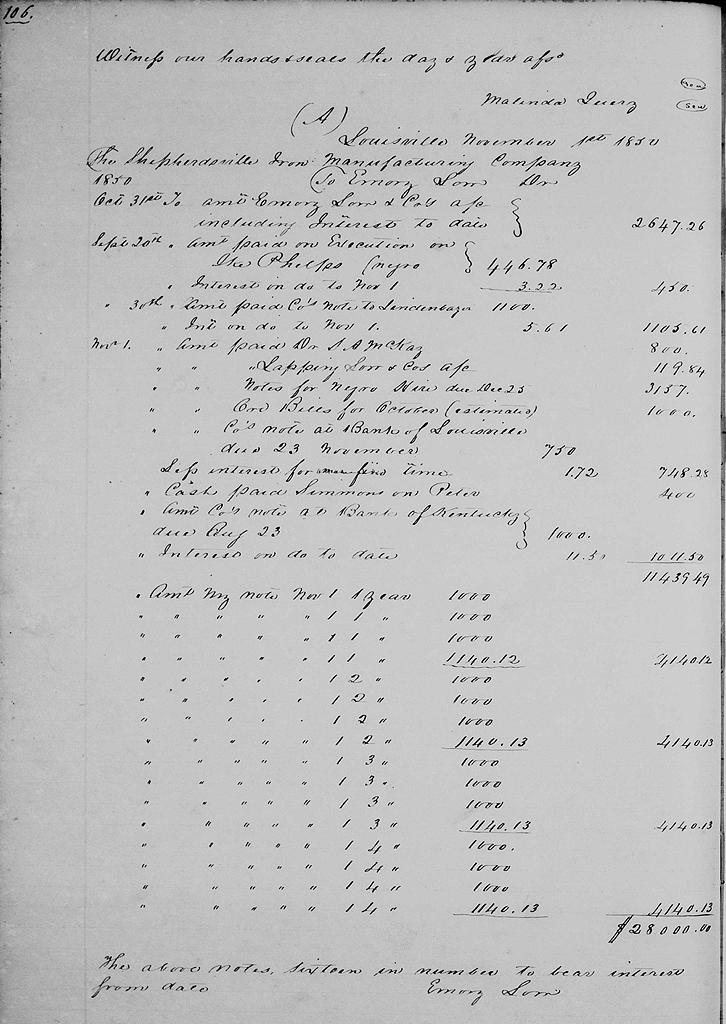 106.
Witness our hands & seals the day & year afsd
Malinda Query (seal)
(seal)
(A)
Louisville November 1st 1850
The Shepherdsville Iron Manufacturing Company
1850 To Emory Low Dr
Oct 31st To amt Emory Low & Co's a/c
including Interest to date } 2647.26
Sept 20th " Amt paid on Execution on
Ike Phelps (negro } 446.78
" Interest on do to Nov 1 3.22 450.
" 30th " Amt paid Co's Note to Lindenbager 1100.
" Int on do to Nov 1. 5.61 1105.61
Nov 1. " Amt paid Dr S A McKay 800.
" " " Lapping Low & Cos a/c 119.84
" " Notes for Negro Hire due Dec 25 3157.
" " Ore Bills for October (estimated) 1000.
" " Co's note at Bank of Louisville
due 23 November 750
Less interest for time 1.72 748.28
" Cash paid Simmons on Peter 400
" Amt Co's note at Bank of Kentucky
due Aug 23 } 1000.
" Interest on do to date 11.50 1011.50
11439.49
" Amt My note Nov 1 1 year 1000
" " " " " 1 1 " 1000
" " " " " 1 1 " 1000
" " " " " 1 1 " 1140.12 4140.12
" " " " " 1 2 " 1000
" " " " " 1 2 " 1000
" " " " " 1 2 " 1000
" " " " " 1 2 " 1140.13 4140.13
" " " " " 1 3 " 1000
" " " " " 1 3 " 1000
" " " " " 1 3 " 1000
" " " " " 1 3 " 1140.13 4140.13
" " " " " 1 4 " 1000.
" " " " " 1 4 " 1000
" " " " " 1 4 " 1000
" " " " " 1 4 " 1140.13 4140.13
$28000.00
The above notes, sixteen in number to bear interest
from date Emory Low